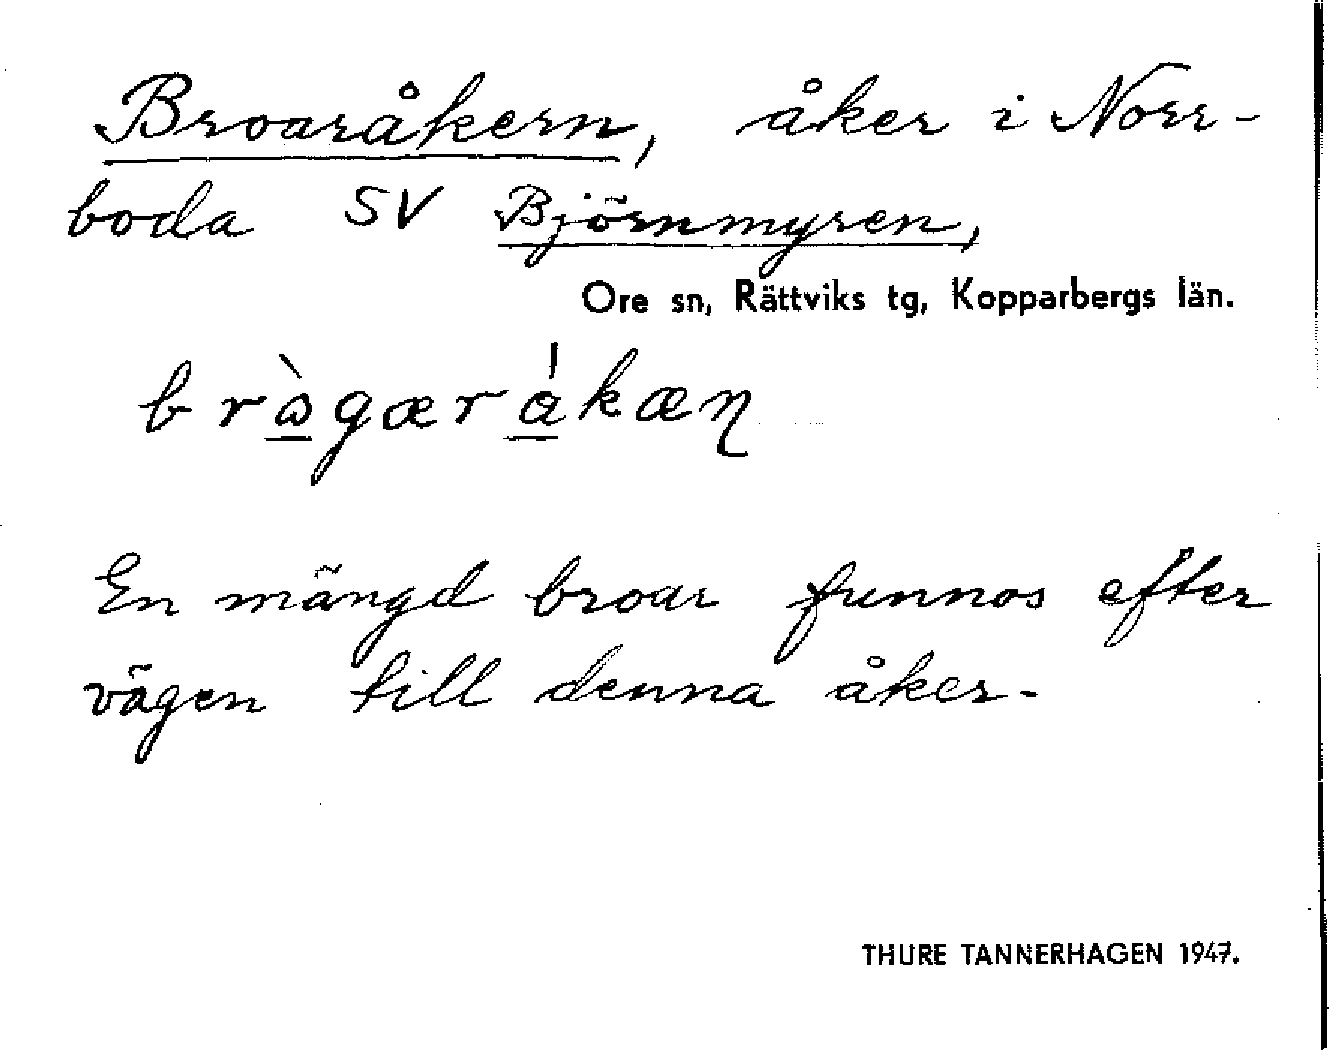 Broaråkern, åker i Norr-
boda SV Björnmyren,
Ore sn, Rättviks tg, Kopparbergs län.
En mängd broar funnos efter
vägen till denna åker.
THURE TANNERHAGEN 1947.